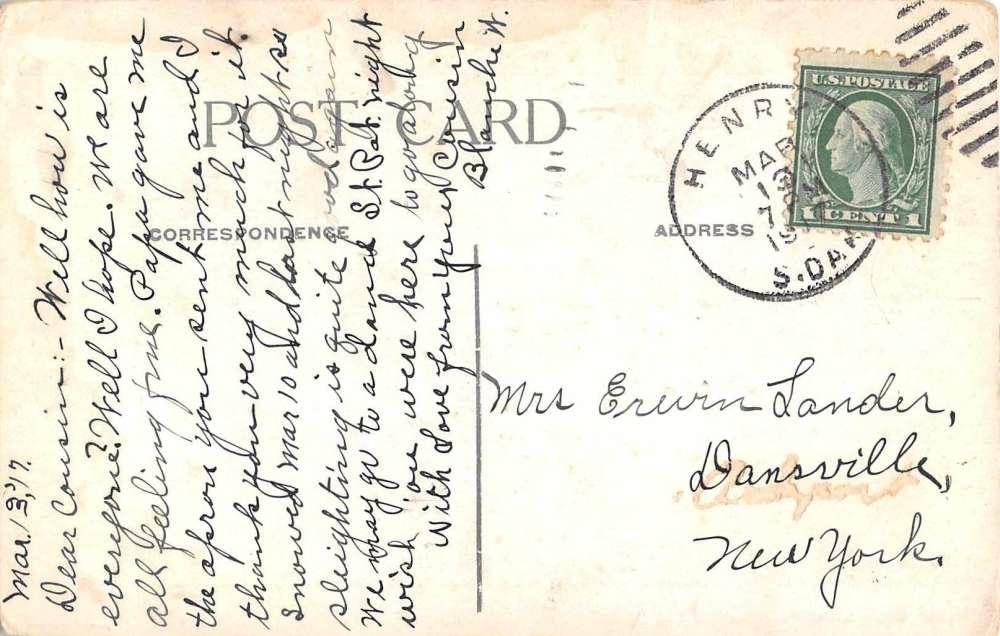 Mar. 13, '17.
Dear Cousin:- Well how is
everyone? Well I hope. We are
all feeling fine. Papa gave me
the apron you sent me and I
thank you very much for it.
Snowed Mar 10 and last night so
sleighting is quite good again
We may go to a dance St. Pat. night
wish you were here to go along
With Love from your Cousin
Blanche W.
POST CARD
CORRESPONDENCE
ADDRESS
U.S. POSTAGE
1 CENT 1
HENRY
MAR
13
1917
S. DAK
Mrs Erwin Lander,
Dansville,
New York.